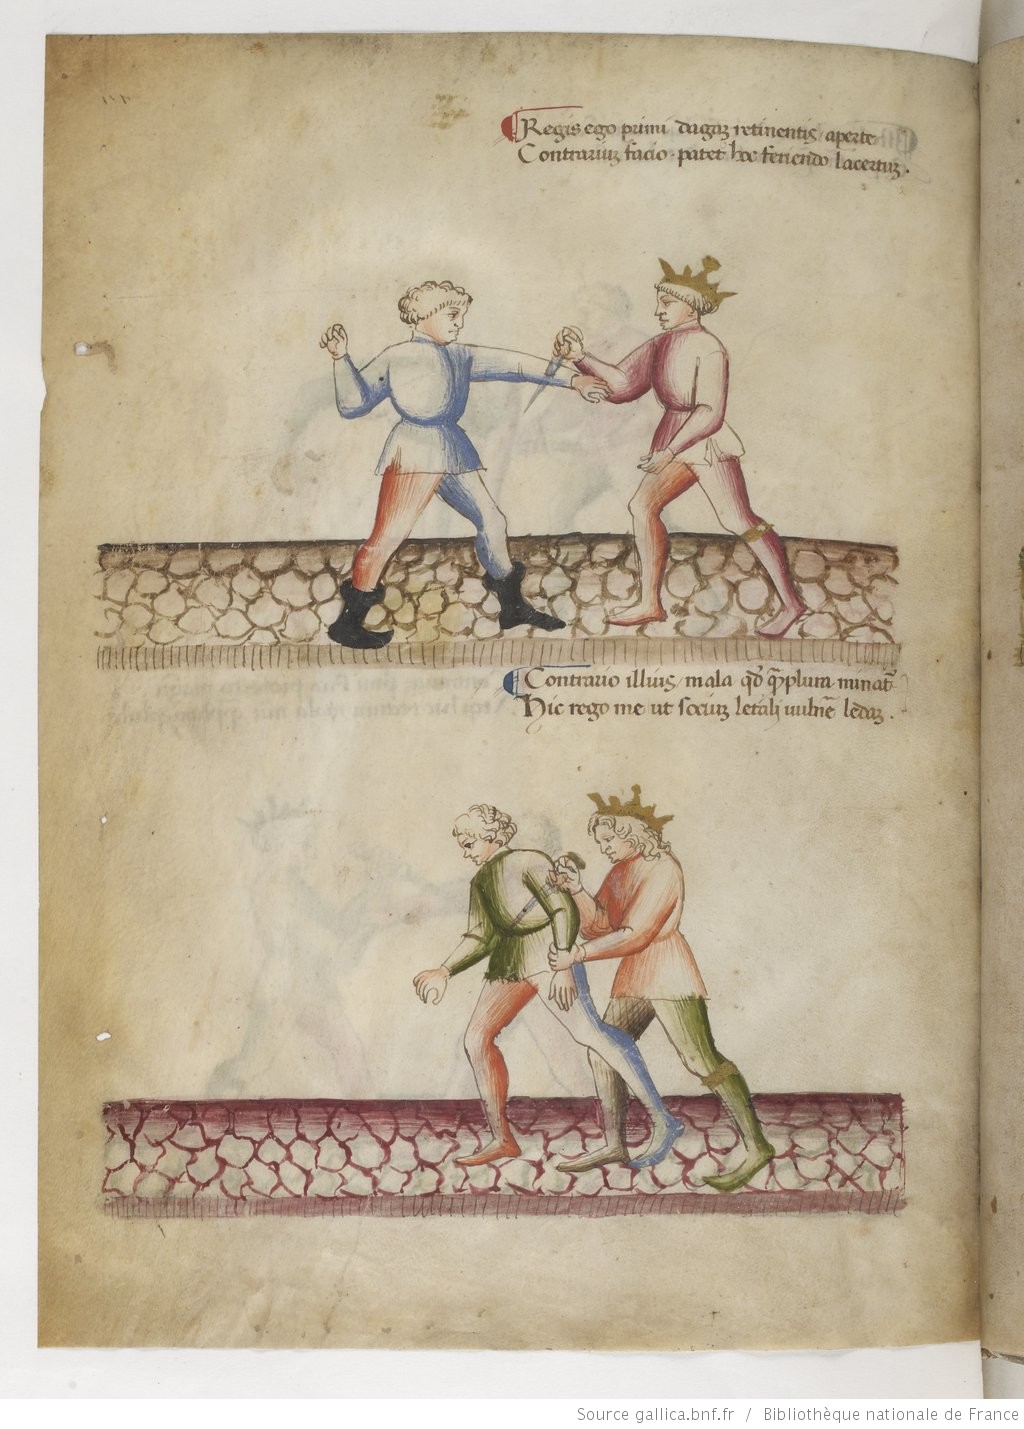 Regis ego primi dagam retinentis aperte
Contrarium facio. patet hoc feriendo lacertum.
Contrario illius mala qd qplura minat
Hic rego me ut socium letali uulne ledam.
Source gallica.bnf.fr / Bibliothèque nationale de France